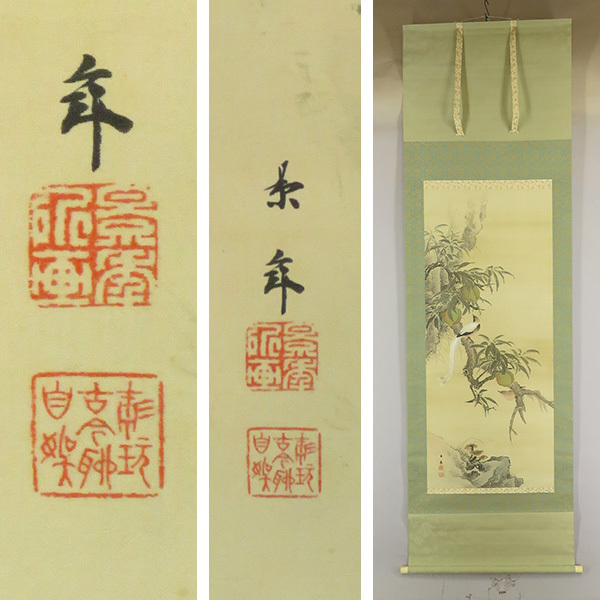 年
景年
所画
玩
古今聊
自娯
景
年
景年
所画
玩
古今聊
自娯